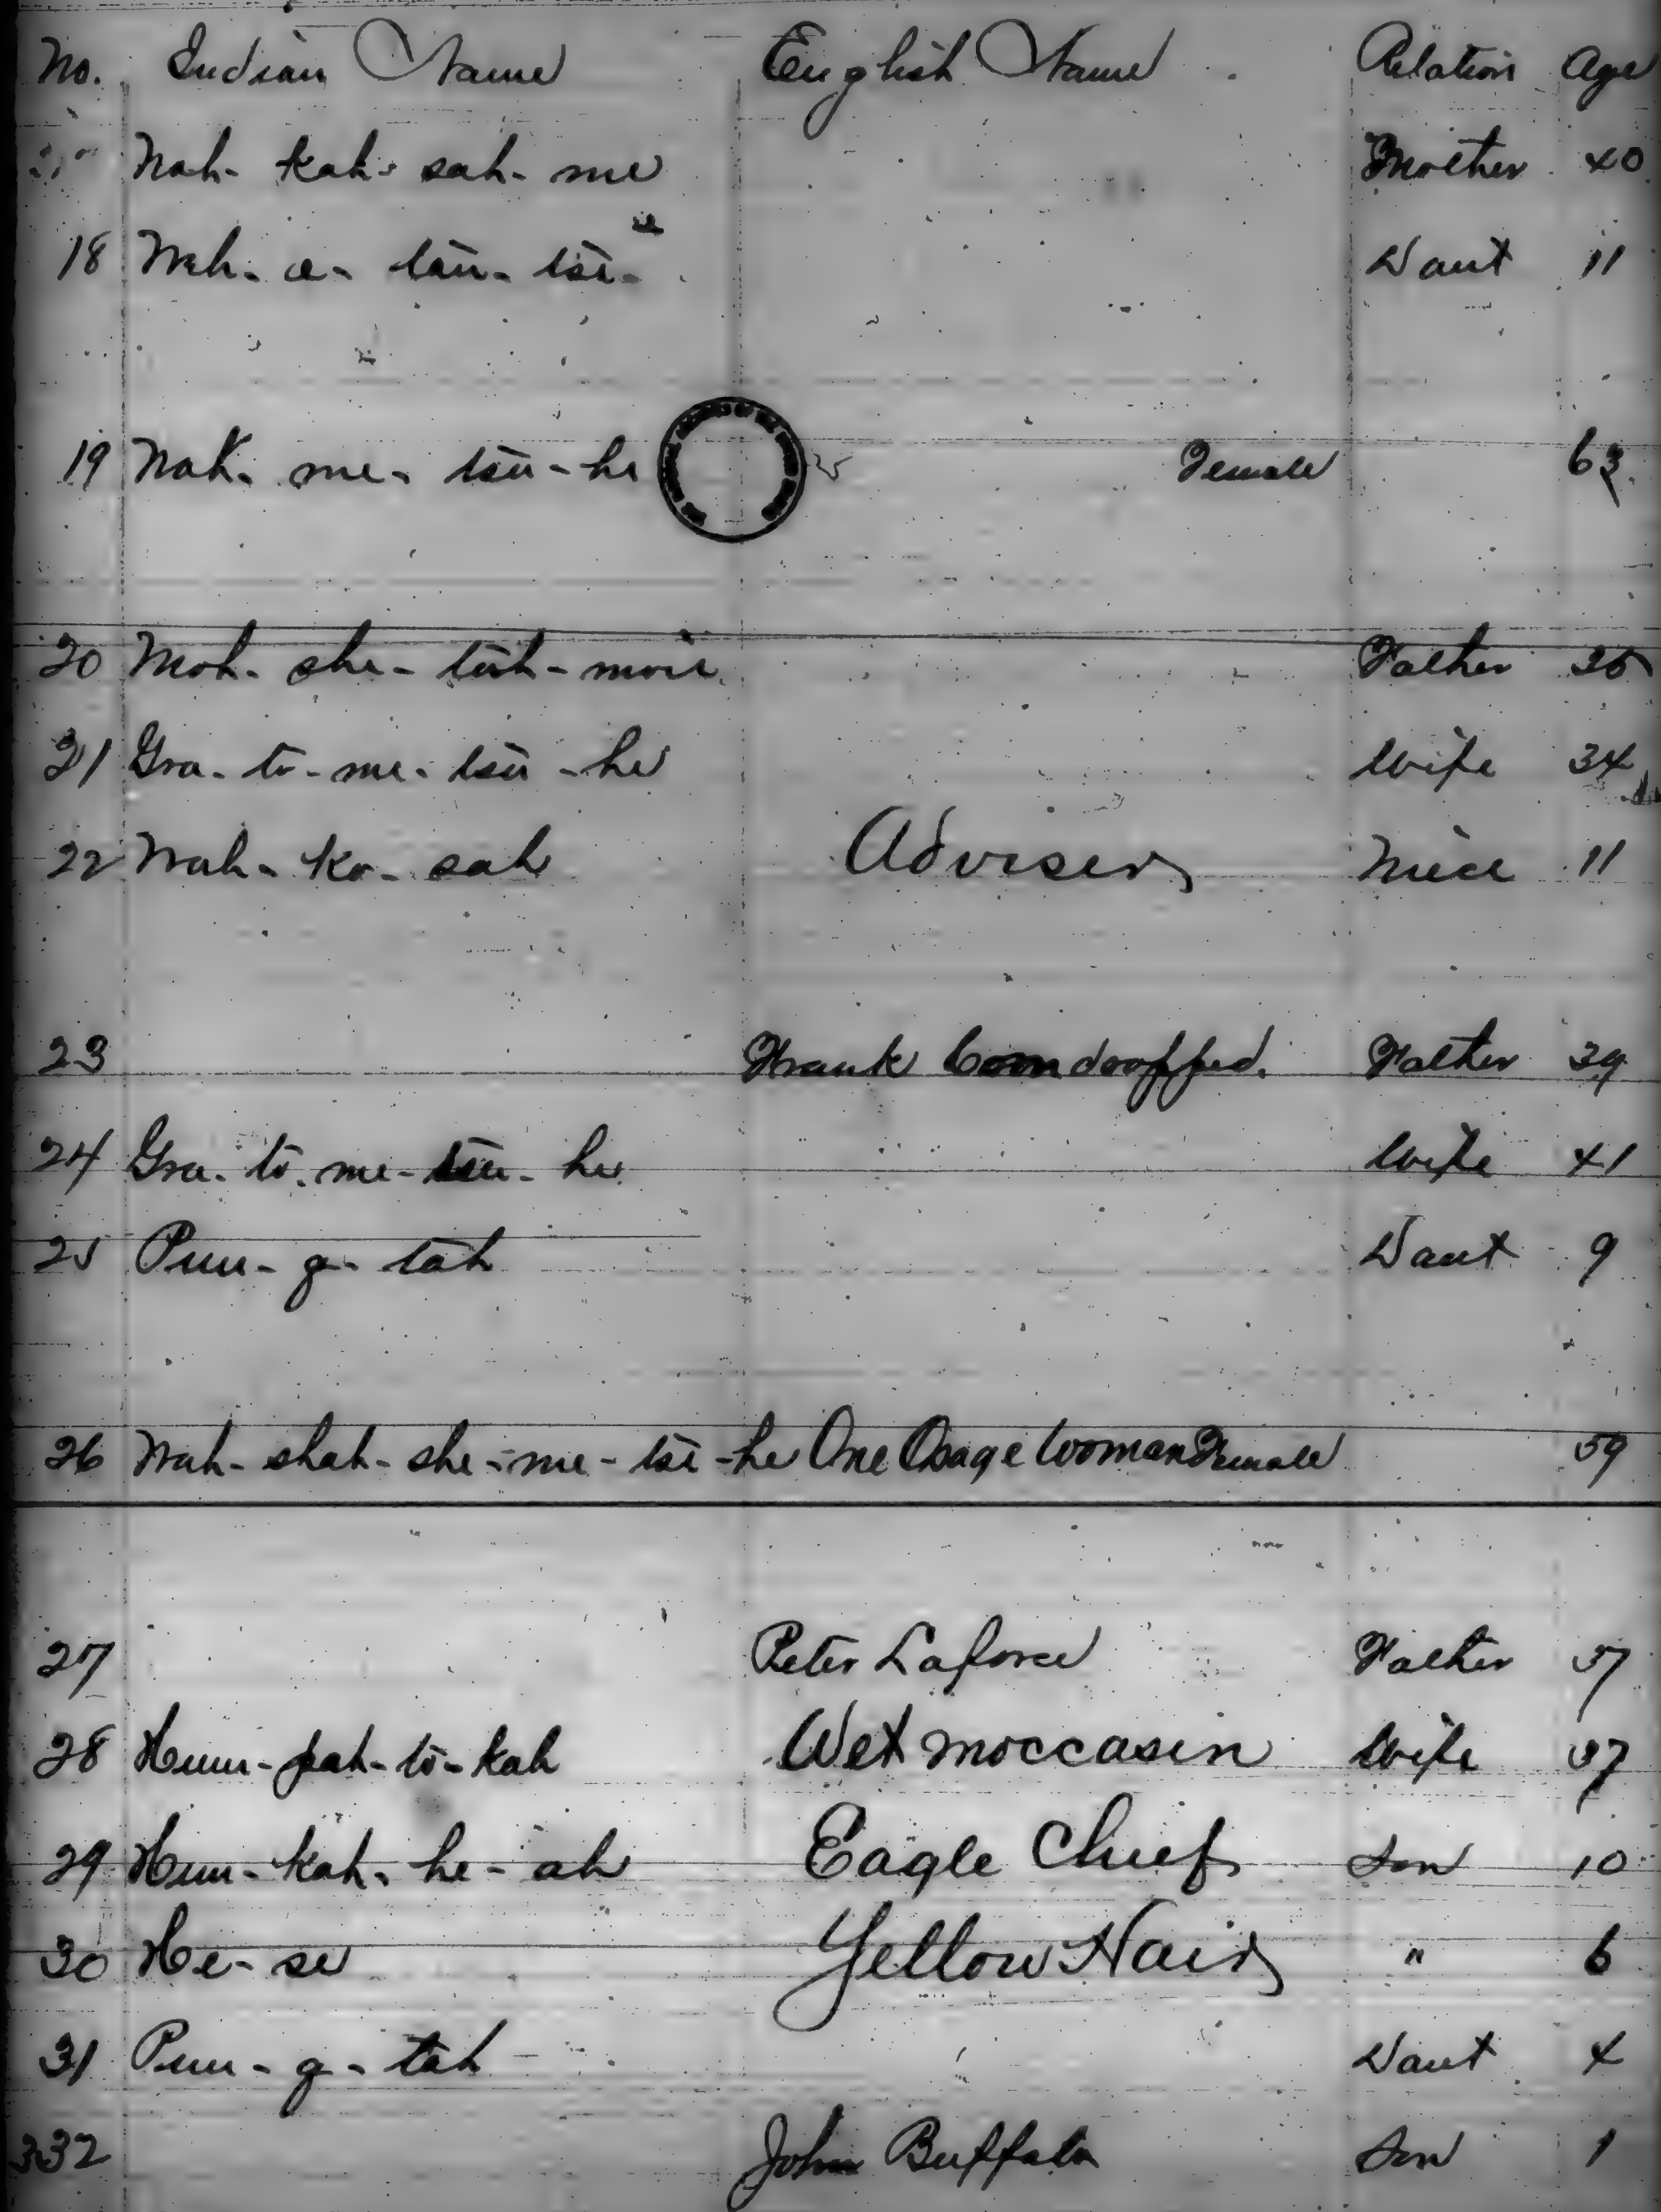 No. Indian Name English Name Relation Age
Nah-kah-sah-me Mother 40
18 Daut 11
19 Nah-me-tsa-he Female 63
20 Moh-she-tah-moie Father 35
21 Gra-to-me-tsa-he Wife 34
22 Wah-ko-sah Adviser Niece 11
23 Frank Corndropped. Father 39
24 Gra-to-me-tsa-he Wife 41
25 Pun-q-tah Daut 9
26 Wah-shah-she-me-tsi-he One Osage Woman Female 59
27 Peter Laforce Father 37
28 Hum-pah-to-kah Wet moccasin Wife 37
29 Hun-kah-he-ah Eagle Chief Son 10
30 He-se Yellow Hair " 6
31 Pun-q-tah Daut 4
332 John Buffalo Son 1